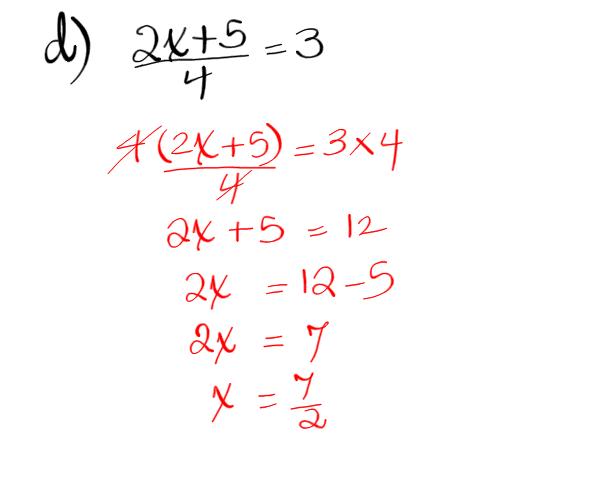 d) (2x+5)/4 = 3
4(2x+5)/4 = 3×4
2x+5 = 12
2x = 12-5
2x = 7
x = 7/2